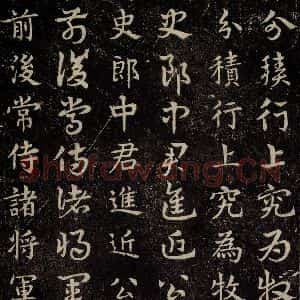 分積行上究為牧
分積行上究為牧
史郎中君進近公
史郎中君進近公
前後常侍諸將軍
前後常侍諸將軍
Shufawang.CN